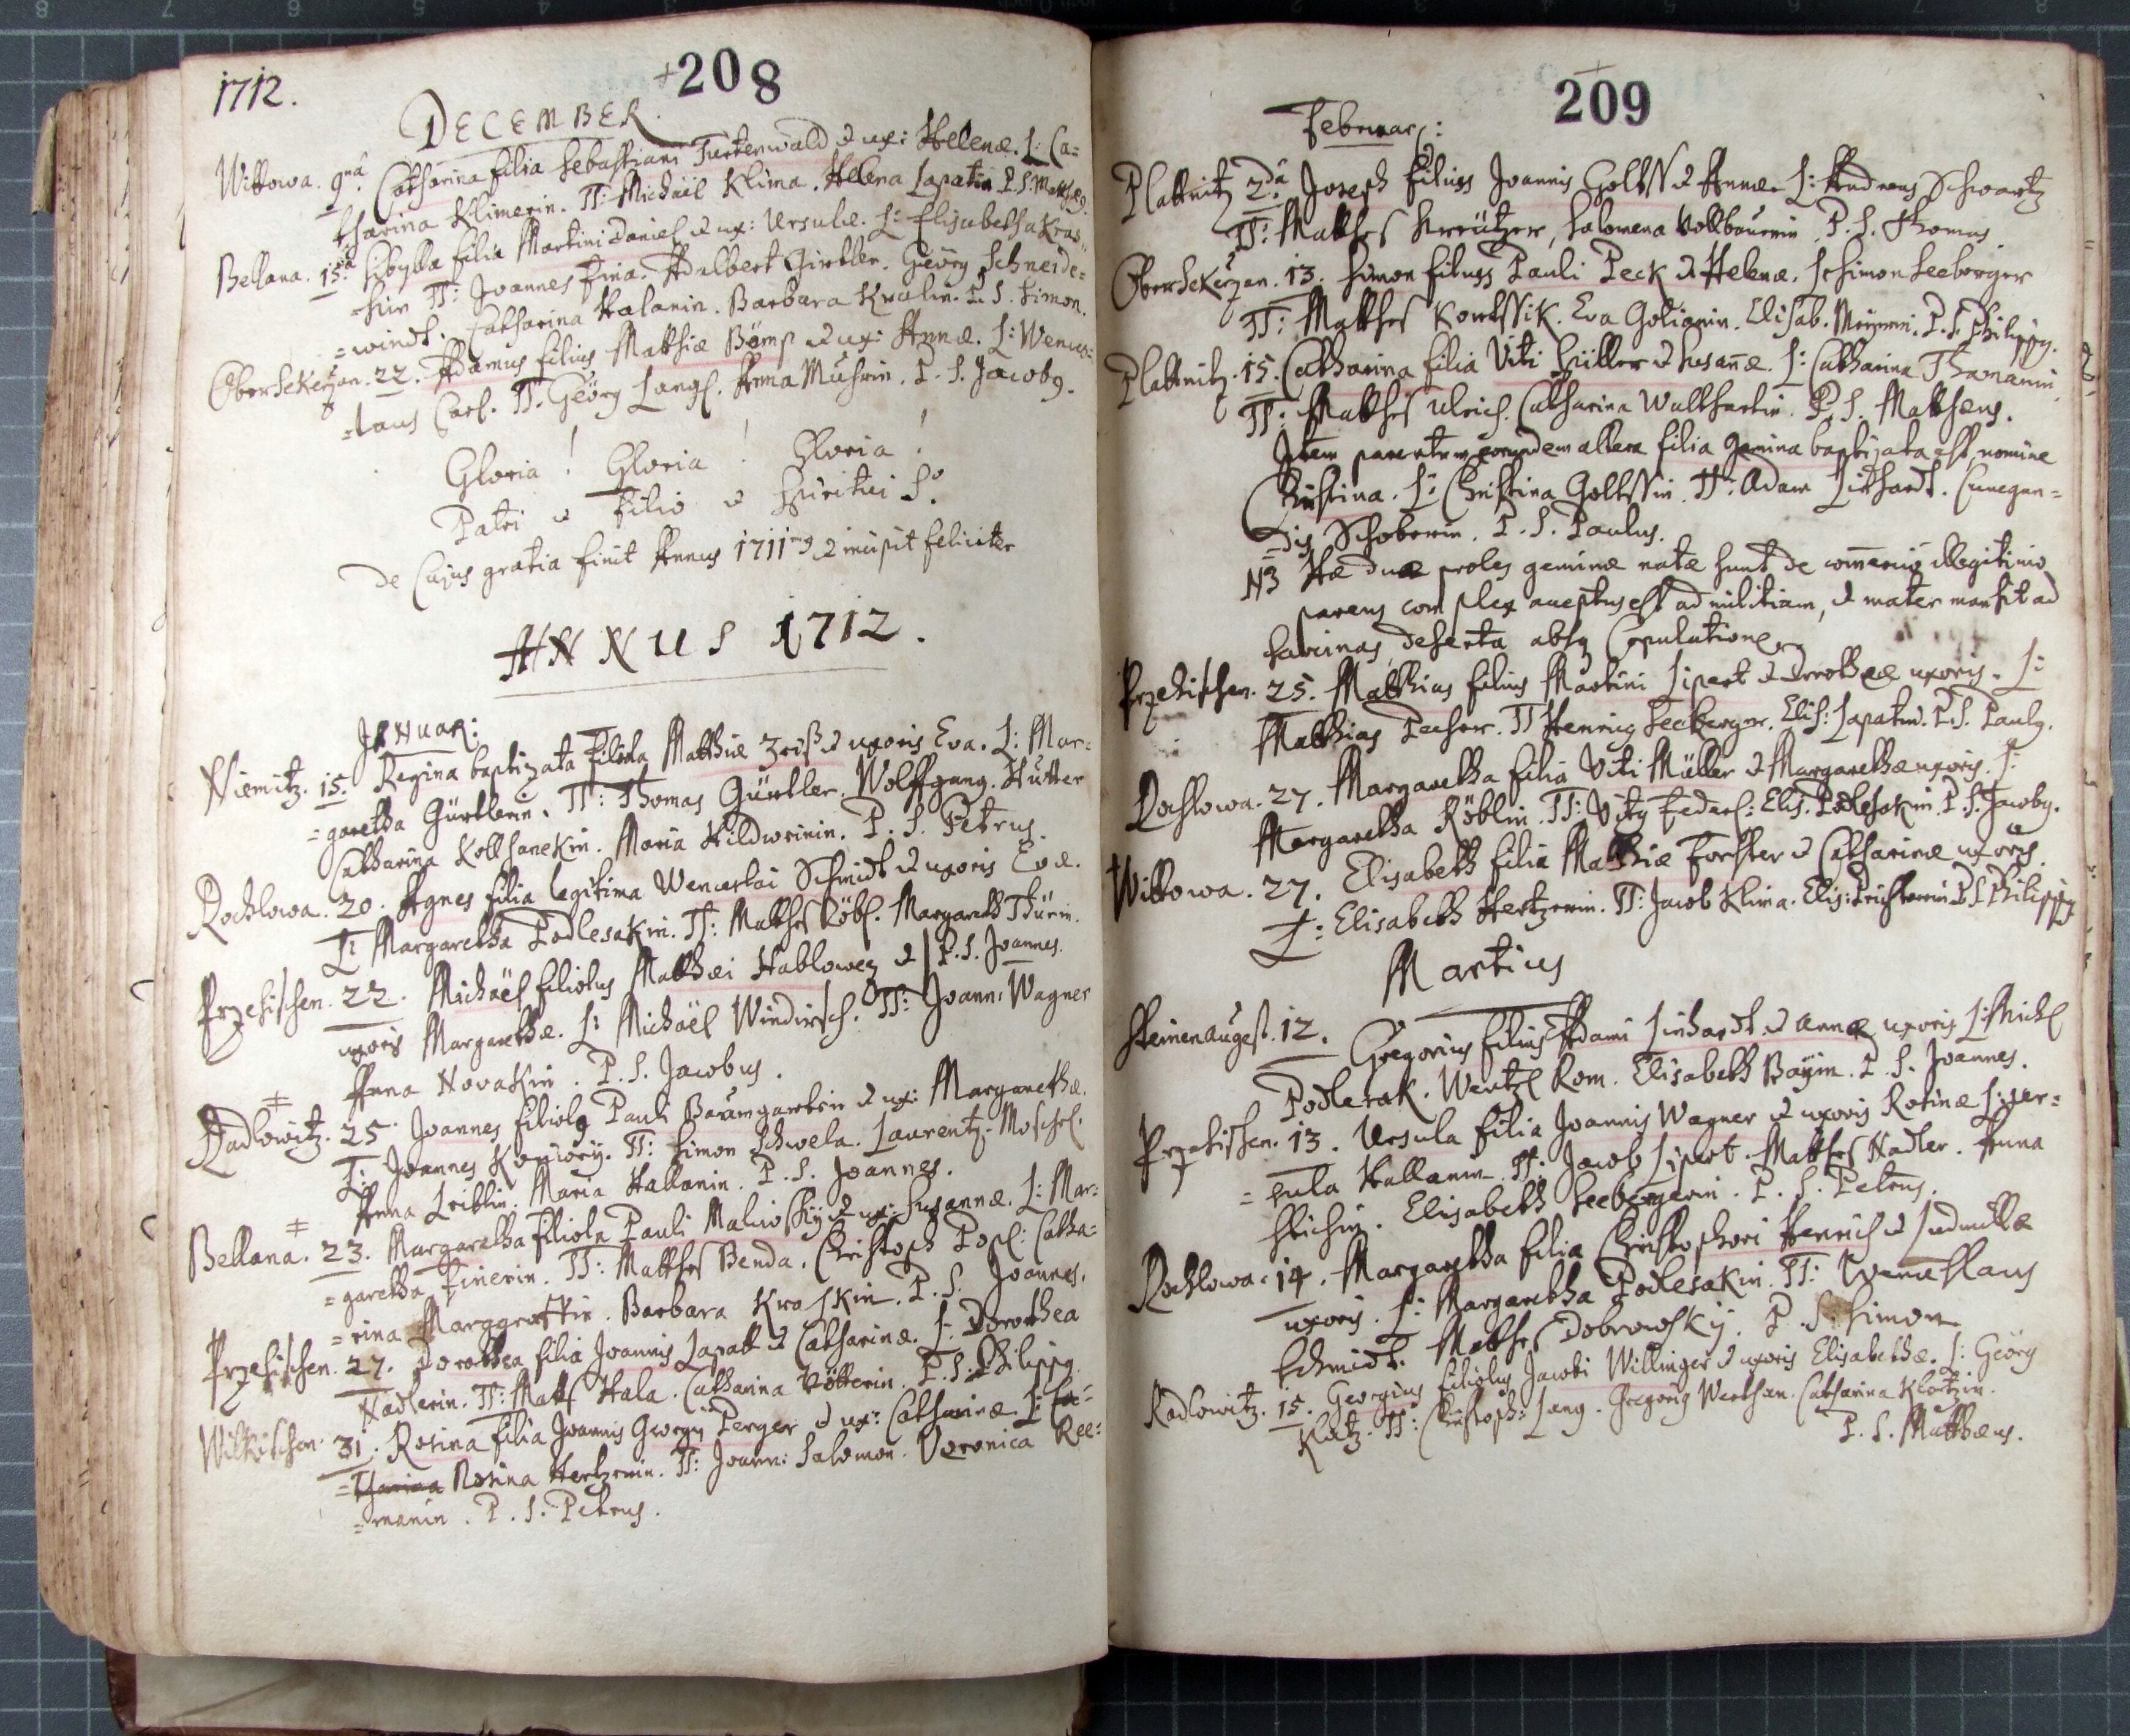 1712.
208
DECEMBER.
Wittowa. 9na. Catharina filia Sebastiani Furtenwald & ux: Helenæ. L: Ca=
tharina Klimerin. TT: Michäel Klima. Helena Lapatin P.S. Matthæ9.
Bellana. 15a. Sibylla filia Martini Daniel & ux: Ursulæ. L: Elisabetha Kras=
TT: Joannes Fina. Adalbert Girtler. Georg Schneide=
=windt. Catharina Halanin. Barbara Kralin. P. S. Simon.
Ober Sekerzan. 22. Adamus filius Mathiæ Bömf & ux: Annæ. L: Wences=
=laus Carl. TT. Geörg Langl. Anna Muhrin. P. S. Jacob9.
Gloria! Gloria! Gloria!
Patri & Filio & Spiritui So
de Cujus gratia finit Annus 1711m9 & incipit feliciter
ANNUS 1712.
JANUAR:
Niemitz. 15. Regina baptizata filiola Matthiæ Zriß & uxoris Eva. L: Mar=
=garetha Gürtlerin. TT: Thomas Gürtler. Wolffgang. Hutter
Catharina Kollhanekin. Maria Hildweinin. P. S. Petrus.
Rochlowa. 20. Agnes filia legitima Wenceslai Schmidt & uxoris Evæ.
L: Margaretha Podlesakin. TT: Matthes Röbl. Margareth Thürin.
P. S. Joannes.
Przehischen. 22. Michäel filiolus Matthæi Hablowez &
uxoris Margarethæ. L: Michäel Windirsch. TT: Joann: Wagner
Anna Novakin. P. S. Jacobus.
Radlowitz. 25. Joannes filiol9 Pauli Baumgartein & ux: Margarethæ.
L: Joannes TT: Simon Schwela. Laurentz. Moschel.
Anna Leiblin. Maria Hallanin. P. S. Joannes.
Bellana. 23. Margaretha filiola Pauli & ux: Susannæ. L: Mar=
=garetha Finerin. TT: Matthes Benda. Christoph Popl: Catha=
=rina Marggraffin. Barbara Kraskin. P. S. Joannes.
Przehischen. 27. Dorothea filia Joannis Lapatt & Catharinæ. L: Dorothea
Hadlerin. TT: Matthes Hala. Catharina Vötterin. P. S. Philipp9
Wilkischen. 31. Rosina filia Joannis Georgy Perger & ux: Catharinæ. L:
Rosina Hertzerin. TT: Joann: Salomon. Veronica Ree=
=manin. P. S. Petrus.
209
Februar:
Plattnitz 2da. Joseph filius Joannis Goltss & Annæ. L: Andreas Schwartz
TT: Matthes Kreützer, Salomena Vollbauerin. P. S. Thomas.
Ober Sekerzan. 13. Simon filius Pauli Peck & Helenæ. L Simon Seeberger
TT: Matthes Kontssik. Eva Golianin. Elisab. P. S. Philipp9.
Plattnitz. 15. Catharina filia Viti Hüller & Susañæ. L: Catharina Thamanin
TT: Matthes Ulrich. Catharina Walthartin. P. S. Matthæus.
Item parentum eorundem altera filia gemina baptizata est, nomine
Christina. L: Christina Goltssin. TT: Adam Linhardt. Cunegun=
=dis Schoberin. P. S. Paulus.
NB Hæ duæ proles geminæ natæ sunt de comercio illegitimo
parens complex acceptus est ad militiam, & mater mansit ad
deserta absq Copulatione
Przehischen. 25. Matthias filius Martini Lipert & Dorotheæ uxoris. L:
Matthias Pecher. TT Henrig Seeberger. Elis: Lapatin. P. S. Paul9.
Rochlowa. 27. Margaretha filia Viti Müller & Margarethæ uxoris. L:
Margaretha Röblin. TT: Vity Fedarl: Elis. Podlesakin. P. S. Jacob9.
Wittowa. 27. Elisabeth filia Mathiæ Forster & Catharinæ uxoris.
L: Elisabeth Hertzerin. TT: Jacob Klima. Elis: P S Philipp9
Martius
Steinenaugest. 12. Gregorius filius Adami Linhardt & Annæ uxoris L: Michl
Podlesak. Wentzl Rom. Elisabeth Baÿrin. P. S. Joannes.
Przehischen. 13. Ursula filia Joannis Wagner & uxoris Rosinæ L: Ur=
=sula Hallanin. TT: Jacob Lipert. Matthes Hadler. Anna
Elisabeth Seebergerin. P. S. Petrus.
Rochlowa. 14. Margaretha filia Christophori Henrich & Ludmillæ
uxoris. L: Margaretha Podlesakin. TT: Wenceslaus
Schmidt. Matthes Dobrowskÿ. P. S. Simon
Radlowitz. 15. Georgius filiolus Jacobi Willinger & uxoris Elisabethæ. L: Geörg
Klotz. TT: Christoph: Lang. Gregorig Werthan. Catharina Klotzin.
P. S. Matthæus.